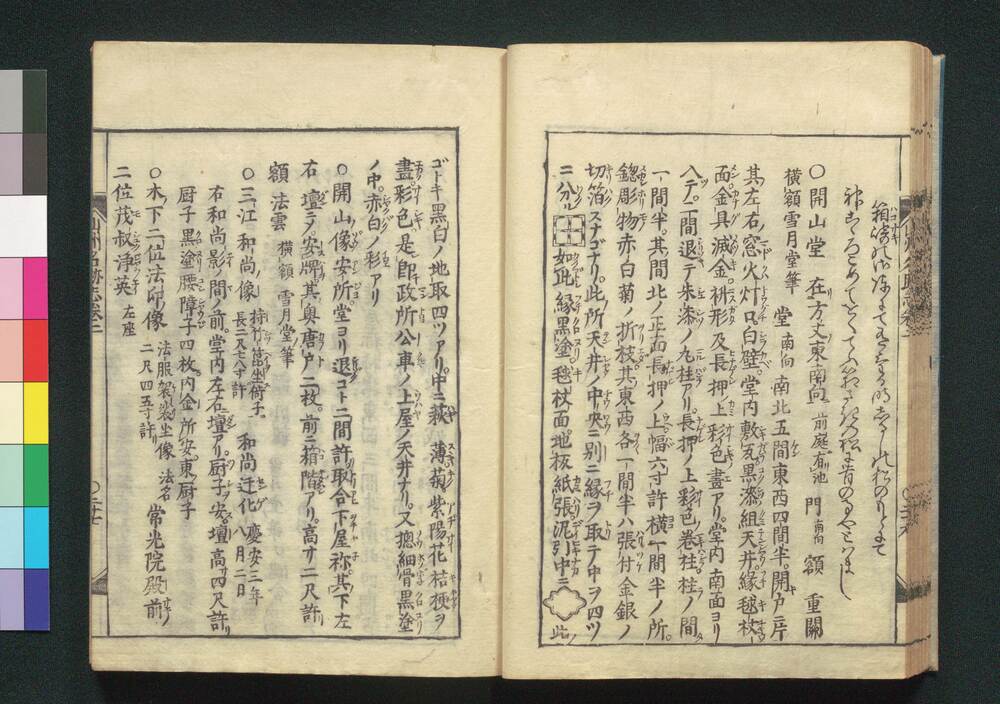 ○開山堂 在方丈東南向 前庭有池 門南向 額 重關
横額雪月堂筆 堂南向 南北五間東西四間半。開戸二片
其左右窓火灯口白壁。堂内敷瓦黒漆組天井縁毬杖
面。金具減金枡形及長押上彩色畫アリ。堂内南面ヨリ
入テ。一間退テ朱漆ノ丸柱アリ。長押ノ上彩色巻柱。柱ノ間
一間半。其間北ノ正面長押ノ上幅六寸許横一間半ノ所。
鏤彫物赤白菊ノ折枝。其東西各一間半ハ張付金銀ノ
切箔スナゴナリ。此所天井ノ中央ニ別ニ縁ヲ取テ中ヲ四ツ
ニ分ル 如此縁黒塗毬杖面。地板紙張泥引中ニ 此ノ
ゴトキ黒白ノ地取四ツアリ。中ニ萩 薄 菊 紫陽花 桔梗ヲ
畫彩色是即政所公車ノ上屋ノ天井ナリ。又摠細骨黒塗
ノ中。赤白ノ彩アリ
○開山像安所堂ヨリ退コト二間許取合下屋祢。其下左
右壇ヲ安牌其奥唐戸二枚。前ニ箱階アリ。高サ二尺許
額 法雲 横額 雪月堂筆
○三江和尚像 持竹箆坐倚子 長二尺七八寸許 和尚迁化 慶安三年 八月二日
右和尚影ノ間ノ前。堂内左右壇アリ。厨子ヲ安。壇高サ四尺許
厨子黒塗腰障子四枚。内金所安。東厨子
○木下二位法印像 法服袈裟坐像 二尺四五寸許 法名 常光院殿前
二位茂叔浄英 左座